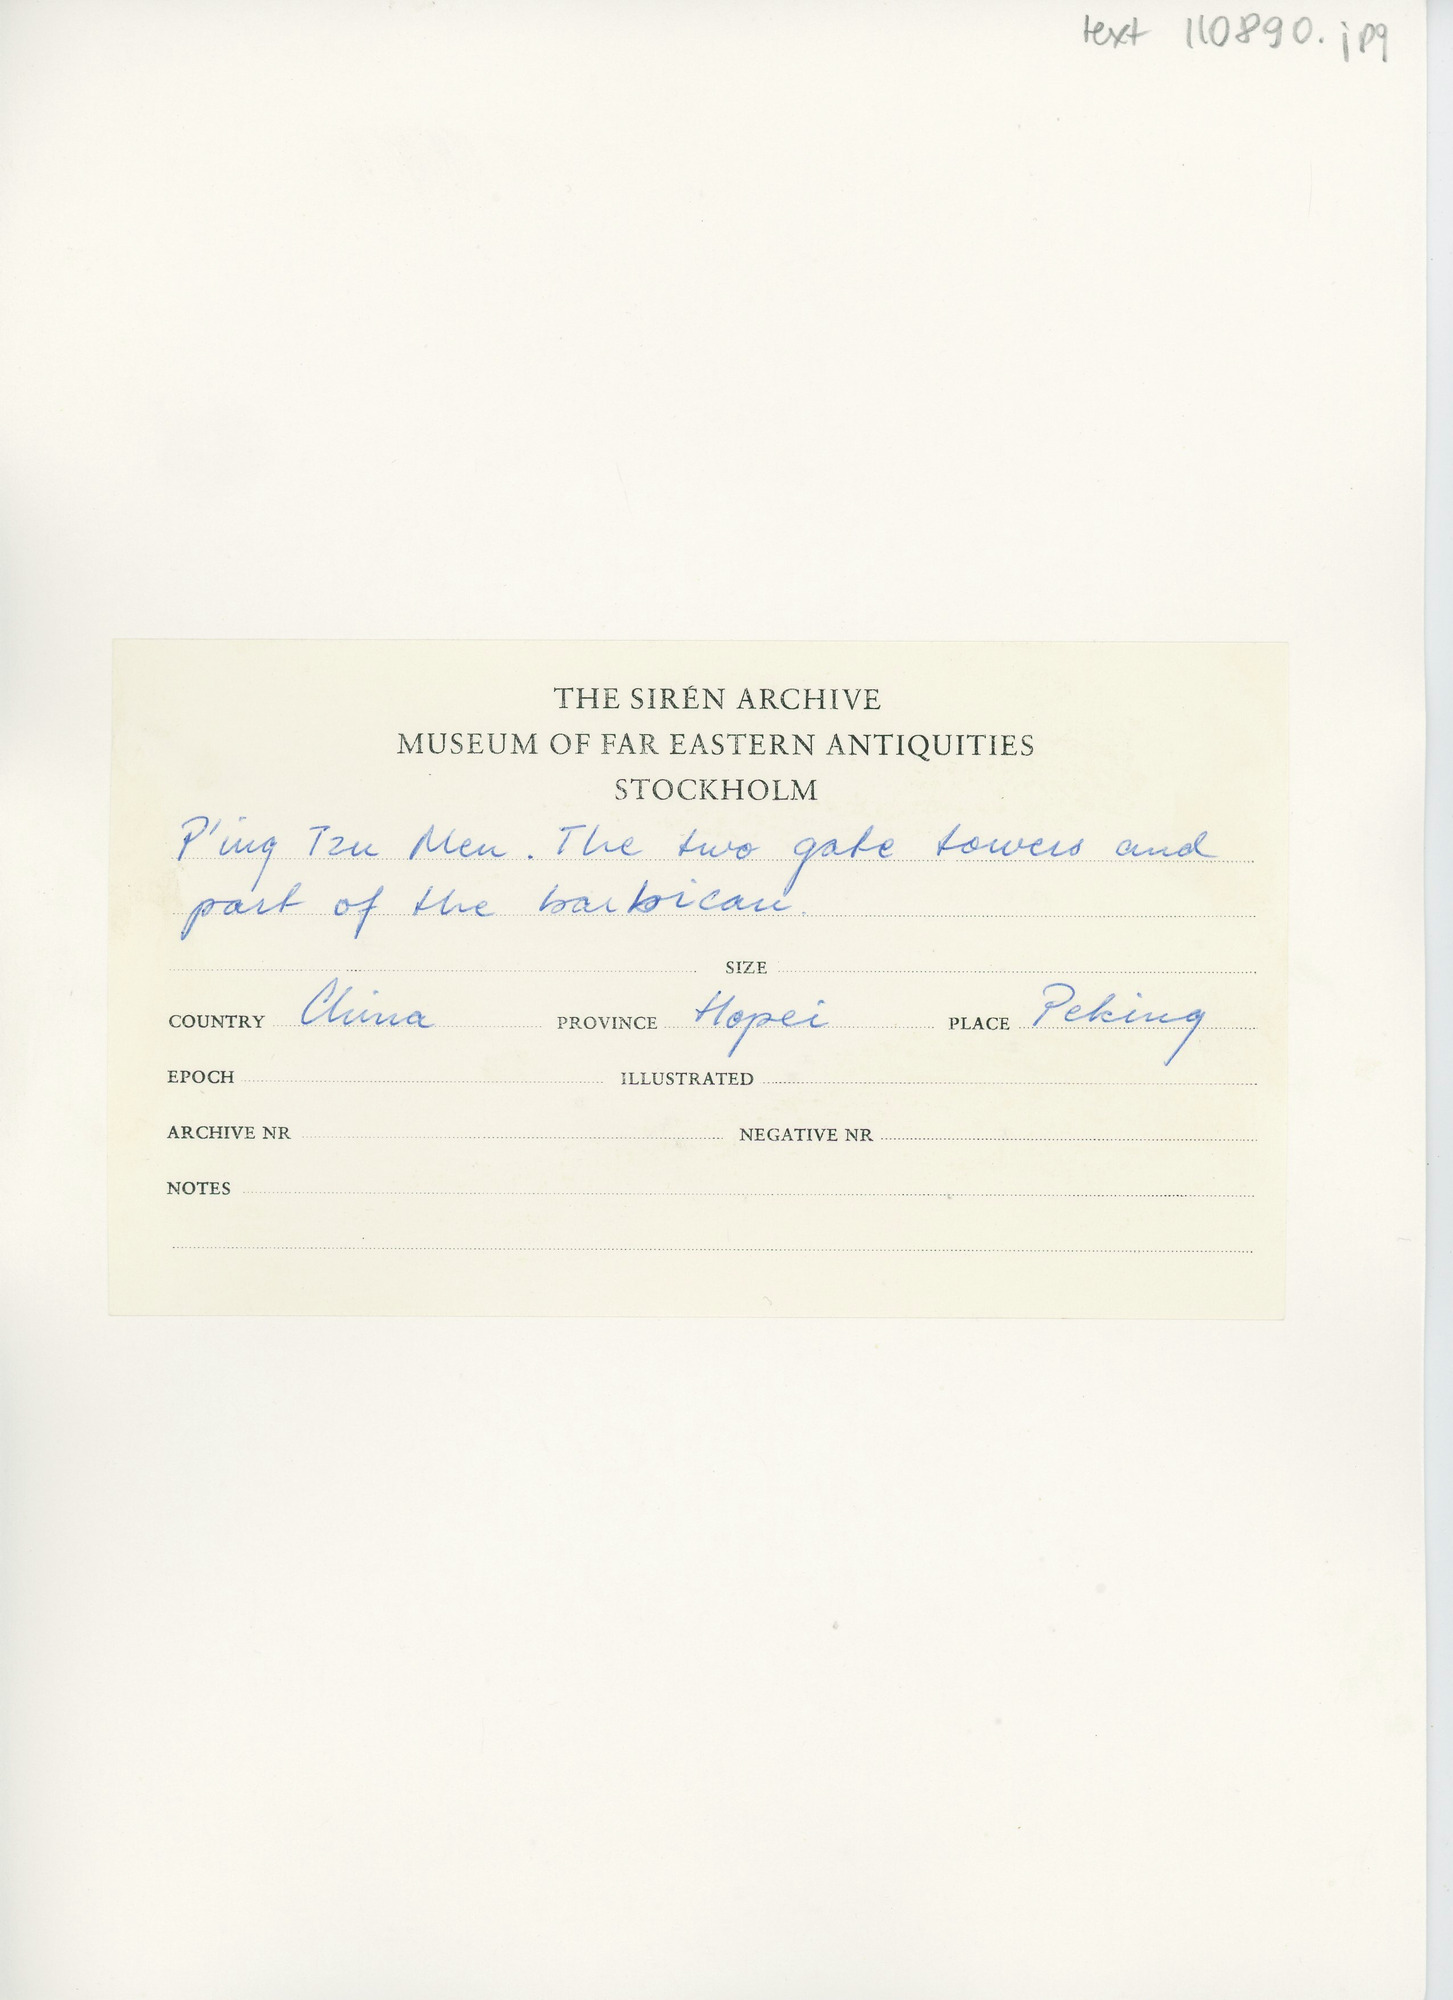 text 110890.jpg
THE SIRÉN ARCHIVE
MUSEUM OF FAR EASTERN ANTIQUITIES
STOCKHOLM
P'ing Tzu Men. The two gate towers and
part of the barbican.
SIZE
COUNTRY China PROVINCE Hopei PLACE Peking
EPOCH ILLUSTRATED
ARCHIVE NR NEGATIVE NR
NOTES